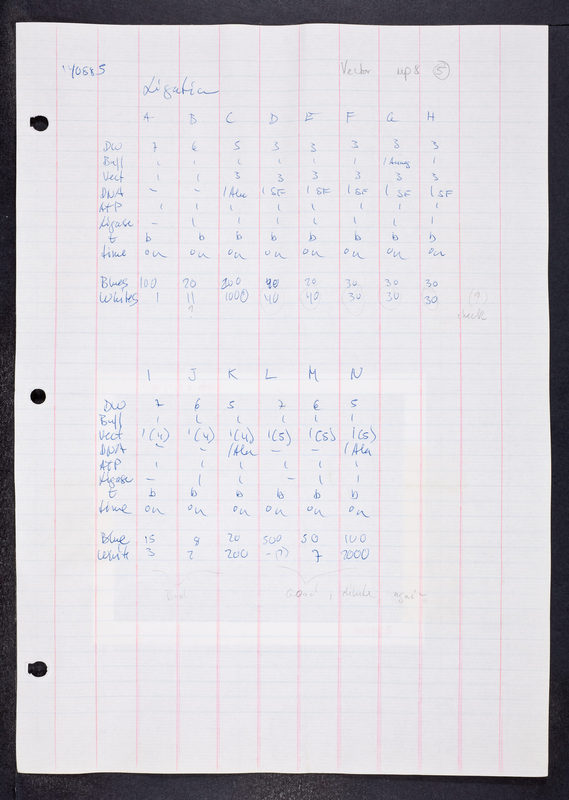 140685 Vector mp8 (5)
Ligation
A B C D E F G H
DW 7 6 5 3 3 3 3 3
Buff 1 1 1 1 1 1 1 1
Vect 1 1 3 3 3 3 3 3
DNA - - 1 Alu 1 SF 1 SF 1 SF 1 SF 1 SF
ATP 1 1 1 1 1 1 1 1
Ligase - 1 1 1 1 1 1 1
t b b b b b b b b
time on on on on on on on on
Blues 100 20 200 20 30 30 30
Whites 1 11 1000 40 40 30 30 30 (?)
? check
I J K L M N
DW 7 6 5 7 6 5
Buff 1 1 1 1 1 1
Vect 1(4) 1(4) 1(4) 1(5) 1(5) 1(5)
DNA - - 1 Alu - - 1 Alu
ATP 1 1 1 1 1 1
Ligase - 1 1 - 1 1
t b b b b b b
time on on on on on on
Blue 15 8 20 500 50 100
White 3 2 200 -(?) 7 2000
Bad Good, dilute again